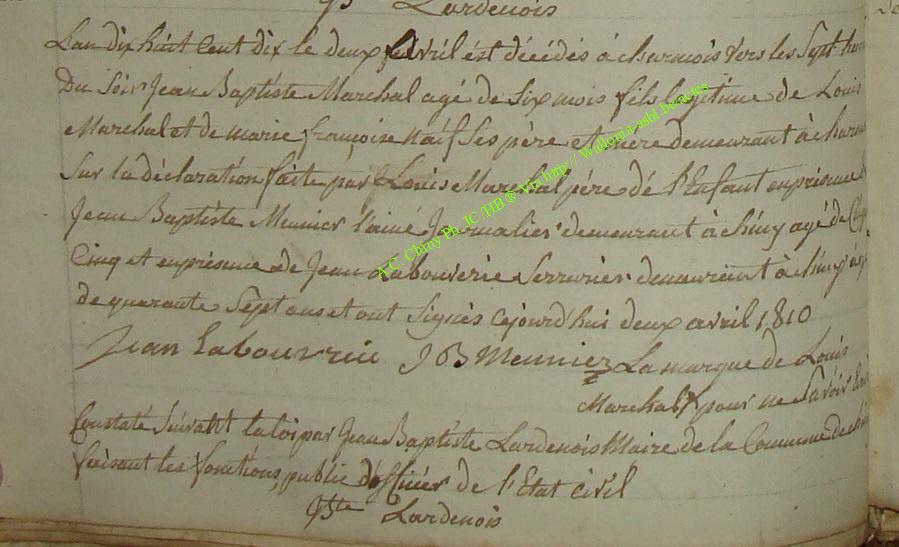 Jbte Lardenois
Lan dix huit Cent dix le deux avril ést décédés à charmois vers les Sept
Du Soir Jean Baptiste Marchal agé de Six mois fils légitime de Louis
Marchal et de marie françoise Naïf Ses père et mere demeurant à
Sur la déclaration faite par Louis Marchal père dé l'Enfant enprésence
Jean Baptiste Meunier l'ainé Journalier demeurant à chiny agé de
Cinq et enprésence de Jean Labouverie Serrurier demeurant à chiny
de quarante Sept ans et ont Signés cejourd'hui deux avril 1810
Jean Labouvrie JB Meunier La marque de Louis
Marchal X pour ne Savoir
Constaté Suivant la loi par Jean Baptiste Lardenois Maire de la Commune de
faisant les fonctions public d'officier de l'Etat civil
Jbte Lardenois
A.C. Chiny Ph. JC /HB ® via http:// Wallonia-asbl